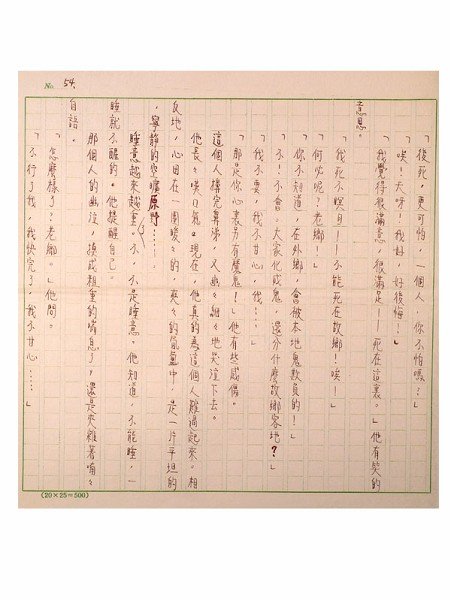 No 54
「後死，更可怕。一個人，你不怕嗎？」
「唉！天呀！我好——好後悔！」
「我覺得很滿意，很滿足——死在這裏。」他有笑的
意思。
「我死不瞑目——不能死在故鄉！唉！」
「何必呢？老鄉！」
「你不知道，在外鄉，會被本地鬼欺負的！」
「不！不會。大家化成鬼，還分什麼故鄉客地？」
「我不要，我不甘心，我……」
「那是你心裏另有魔鬼！」他有些感傷。
這個人
又幽幽細細地哭泣下去。
他長長嘆口氣。現在，他真的為這個人難過起來。相
反地，心田在一團暖暖的，爽爽的氣氳中，是一片平坦的
，寧靜的空曠原野……。
睡意越來越重。不，不是睡意。他知道，不能睡，一
睡就不醒的。他提醒自己。
那個人的幽泣，換成粗重的喘息了，還是夾雜著喃喃
自語。
「怎麼樣了？老鄉。」他問。
「不行了我，我快完了，我不甘心……」
(20×25=500)